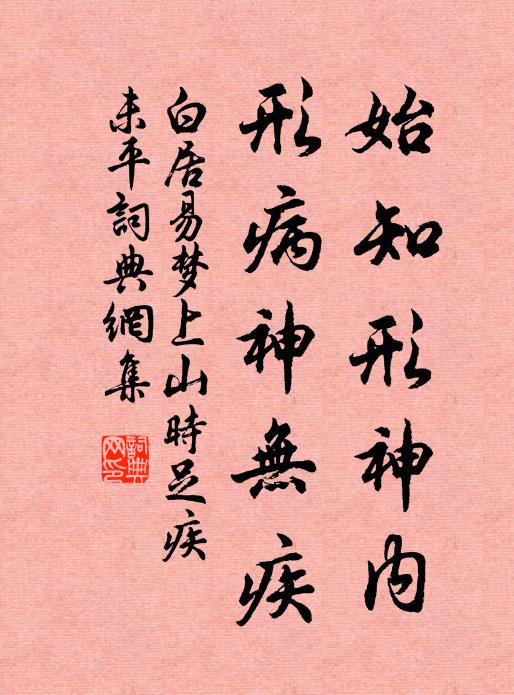 始知形神内
形病神無疾
白居易梦上山時足疾
未平詞典網集
詞典网印